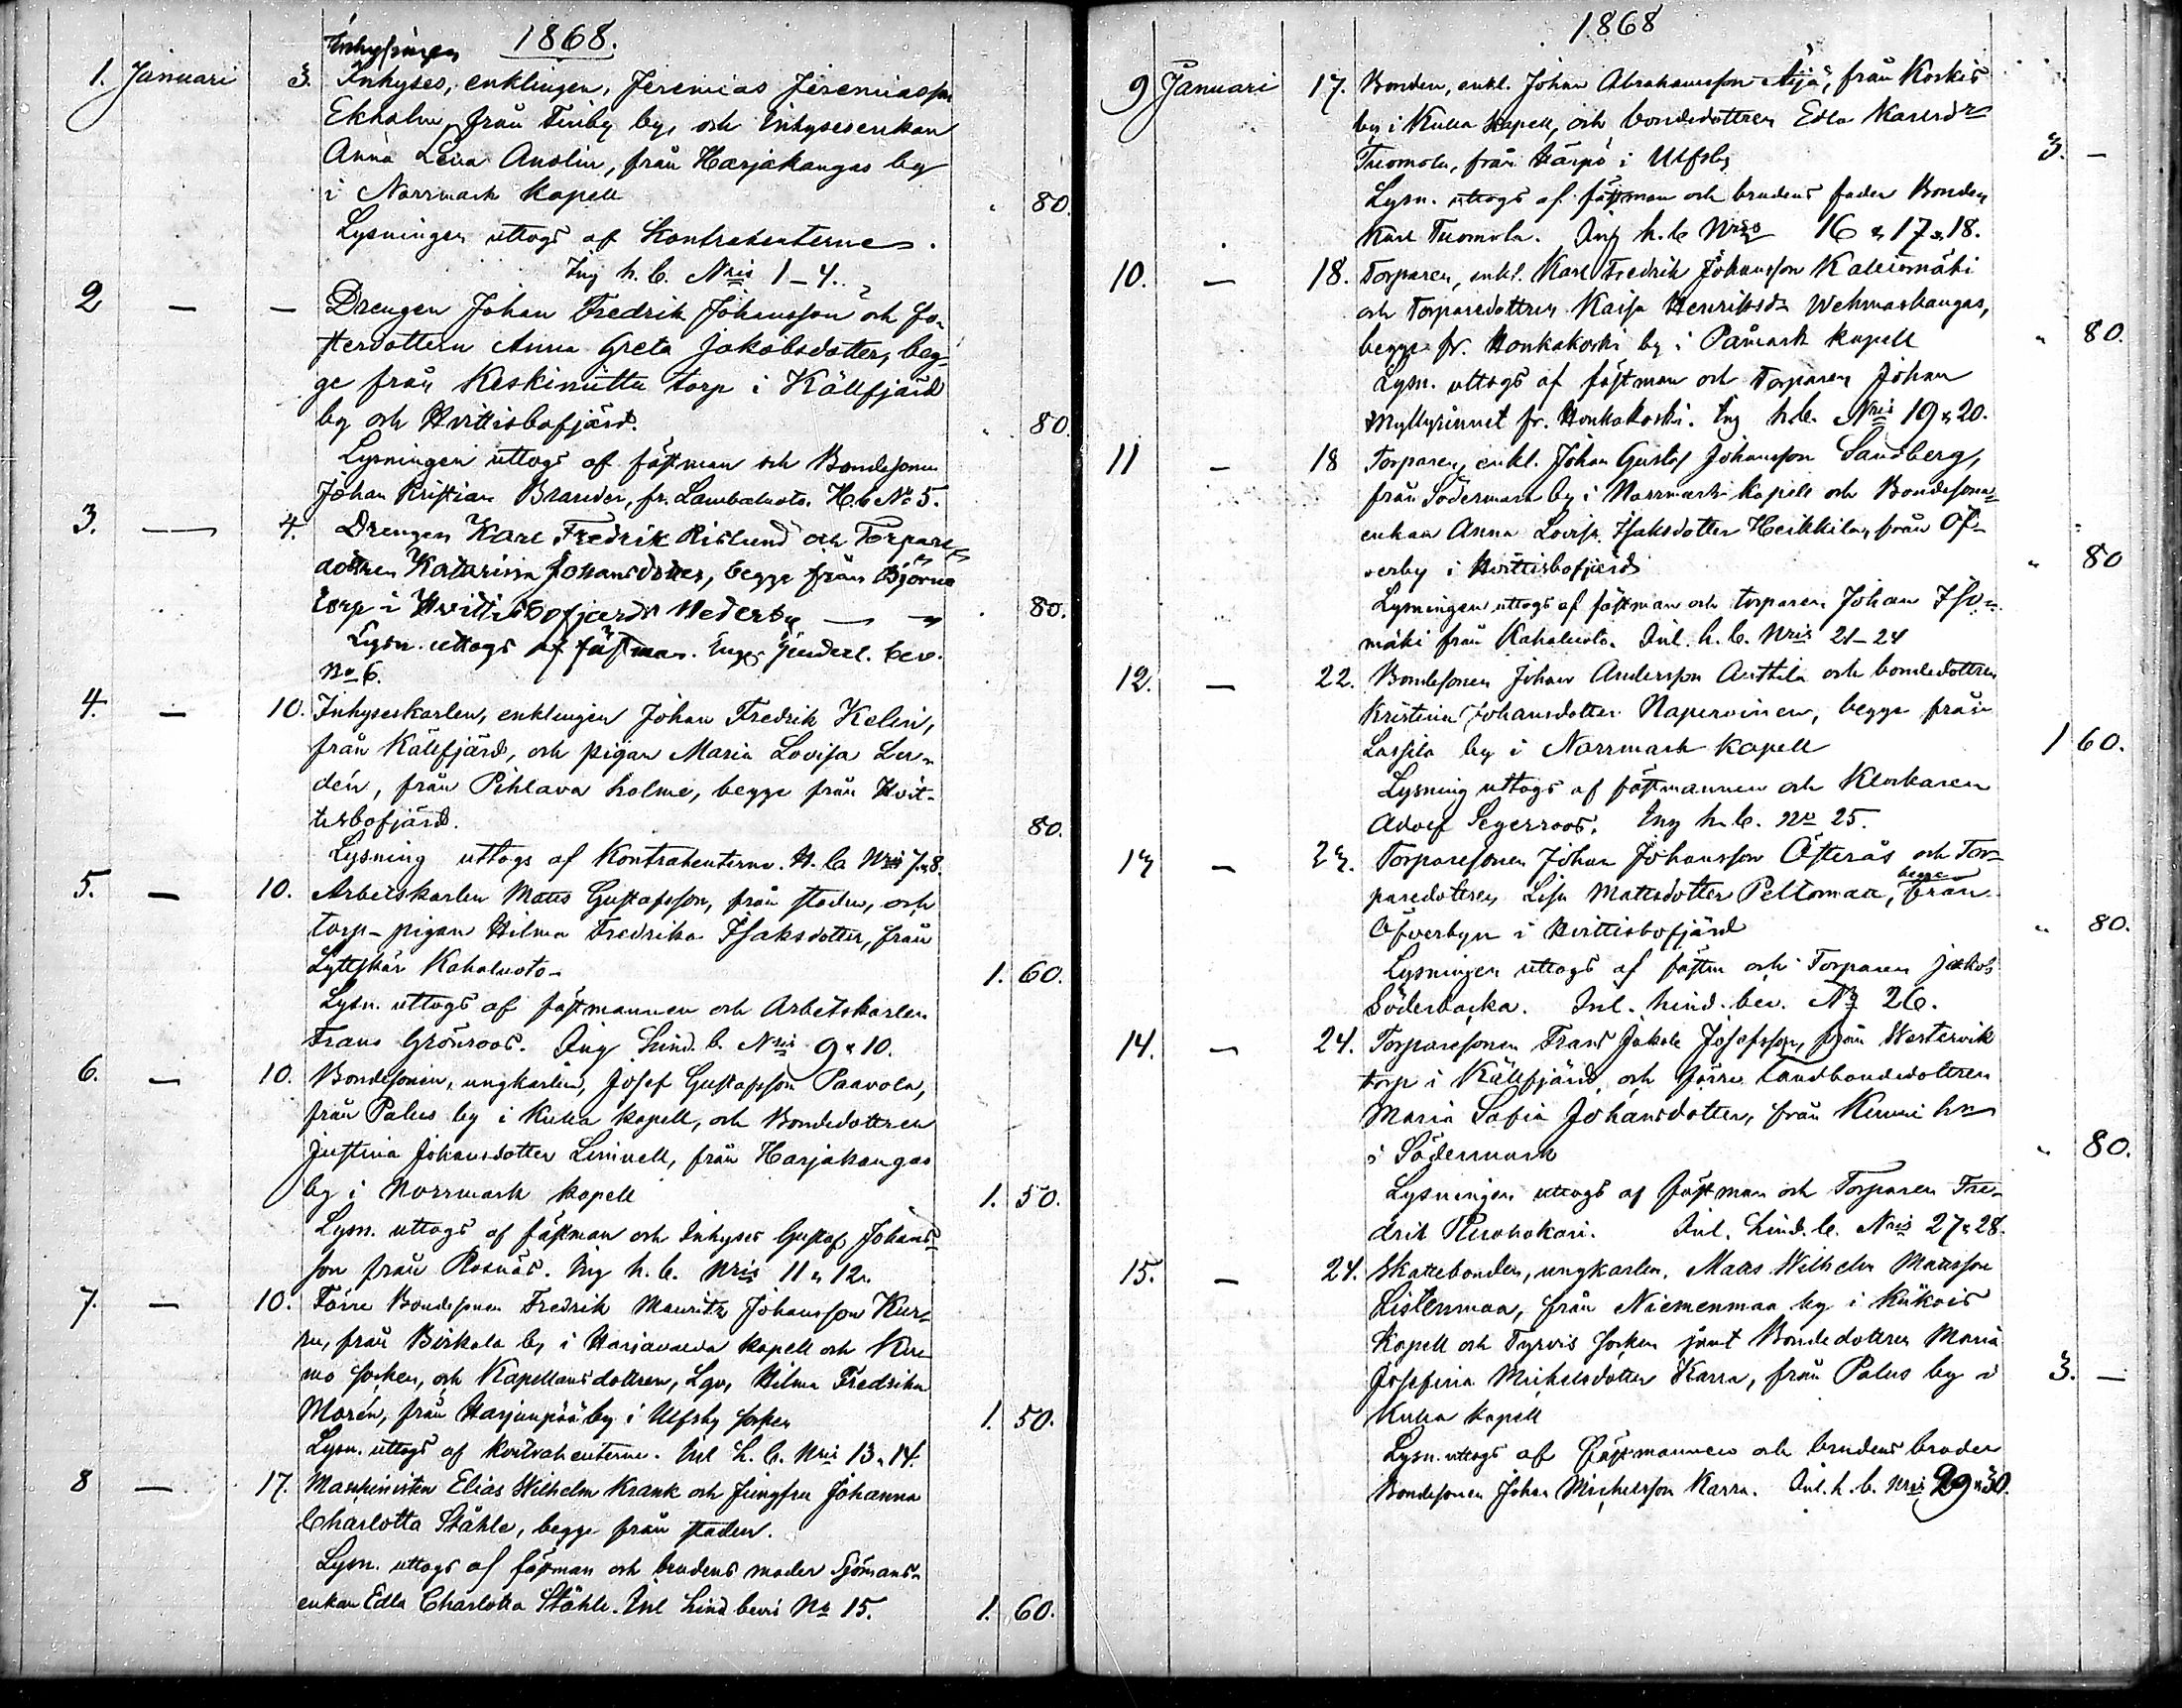 1868.
Inhysingen
1. Januari 3. Inhyses, enklingen, Jeremias Jeremiasson
Ekholm, från Finby by, och Inhysesenkan
Anna Lena Anolin, från Harjakangas by
i Norrmark kapell . 80.
Lysningen uttogs af Kontrahenterne.
Ing h. b. Nris 1-4.
2 — — Drengen Johan Fredrik Johansson och fo-
sterdottern Anna Greta Jakobsdotter, beg-
ge från Keskinuttu torp i Källfjärd
by och Hvittisbofjärd. 80.
Lysningen uttogs af fästman och Bondesonen
Johan Kristian Brander, fr. Lambaluoto. H.b No 5.
3. — 4. Drengen Karl Fredrik Rislund och Torpare-
dottren Katarina Johansdotter, begge från Björna
torp i Hvittisbofjerds Nederby — 80.
Lysn. uttogs af fästman.
No 6.
4. — 10. Inhyseskarlen, enklingen Johan Fredrik Kelin,
från Källfjärd, och pigan Maria Lovisa Lin-
dén, från Pihlava holme, begge från Hvit-
tisbofjärd. 80.
Lysning uttogs af Kontrahenterne. H. b Nris 7 & 8.
5. — 10. Arbetskarlen Matts Gustafsson, från staden, och
torp-pigan Hilma Fredrika Isaksdotter, från
Lyttskär Kahaluoto 1. 60.
Lysn. uttogs af fästmannen och Arbetskarlen
Frans Grönroos. Ing hind. b. Nris 9 & 10.
6. — 10. Bondesonen, ungkarlen, Josef Gustafsson Paavola,
från Palus by i Kulla kapell, och Bondedottren
Justina Johansdotter Linnell, från Harjakangas
by i Norrmark kapell 1. 50.
Lysn. uttogs af fästman och Inhyses Gustaf Johans-
son från Rosnäs. Ing h. b. Nris 11 & 12.
7. — 10. Förre Bondesonen Fredrik Mauritz Johansson Kur-
ru, från Birkala by i Harjavalda kapell och Kiu-
mo socken, och Kapellansdottren, Hilma Fredrika
Morén, från Harjunpää by i Ulfsby socken 1. 50.
Lysn. uttogs af kontrahenterne. Inl h. b. Nris 13 & 14.
8 — 17. Maschinisten Elias Wilhelm Krank och Jungfru Johanna
Charlotta Ståhle, begge från staden.
Lysn. uttogs af fästman och brudens moder Sjömans-
enkan Edla Charlotta Ståhle. Inl hind bevis No 15. 1. 60.
1868
9 Januari 17. Bonden, enkl. Johan Abrahamsson Äijä, från Koskis
by i Kulla kapell, och bondedottren Edla Karlsdr
Tuomola, från Härpö i Ulfsby 3. —
Lysn. uttogs af fästman och brudens fader Bonden
Karl Tuomola. Ing h. b Nris 16 & 17 & 18.
10. — 18. Torparen, enkl. Karl Fredrik Johansson Kalliomäki
och Torparedottren Kaisa Henriksdr Wehmaskangas,
begge fr. Honkakoski by i Påmark kapell " 80.
Lysn. uttogs af fästman och Torparen Johan
Myllyrinnet fr. Honkakoski. Ing h.b. Nris 19 & 20.
11 — 18 Torparen, enkl. Johan Gustaf Johansson Sandberg,
från Södermark by i Norrmark kapell och Bondesons-
enkan Anna Lovisa Isaksdotter Heikkila, från Öf-
verby i Hvittisbofjärd " 80
Lysningen uttogs af fästman och torparen Johan Iso-
mäki från Kahaluoto. Inl. h. b. Nris 21-24
12. — 22. Bondesonen Johan Andersson Anttila och bondedottren
Kristina Johansdotter Napervinen, begge från
Lassila by i Norrmark kapell 1 60.
Lysning uttogs af fästmannen och Klockaren
Adolf Segerroos. Ing h. b. No 25.
13 — 23. Torparesonen Johan Johansson Österås och Tor-
paredottren Lisa Mattsdotter Peltomaa, begge från
Öfverbyn i Hvittisbofjärd " 80.
Lysningen uttogs af fästm och Torparen Jakob
Söderbacka. Inl. hind. bev. No 26.
14. — 24. Torparesonen Frans Jakob Josefsson, från Westervik
torp i Källfjärd, och förre Landbondedottren
Maria Sofia Johansdotter, från Kummi hn
i Södermark " 80.
Lysningen uttogs af fästman och Torparen Fre-
drik Ruohokari. Inl. hind. b. Nris 27 & 28.
15. — 24. Skattebonden, ungkarlen, Matts Wilhelm Mattsson
Listenmaa, från Niemenmaa by i Kiikois
Kapell och Tyrvis socken samt Bondedottren Maria
Josefina Michelsdotter Karra, från Palus by i 3. —
Kulla kapell
Lysn. uttogs af fästmannen och brudens broder
Bondesonen Johan Michelsson Karra. Inl. h. b. Nris 29 & 30.